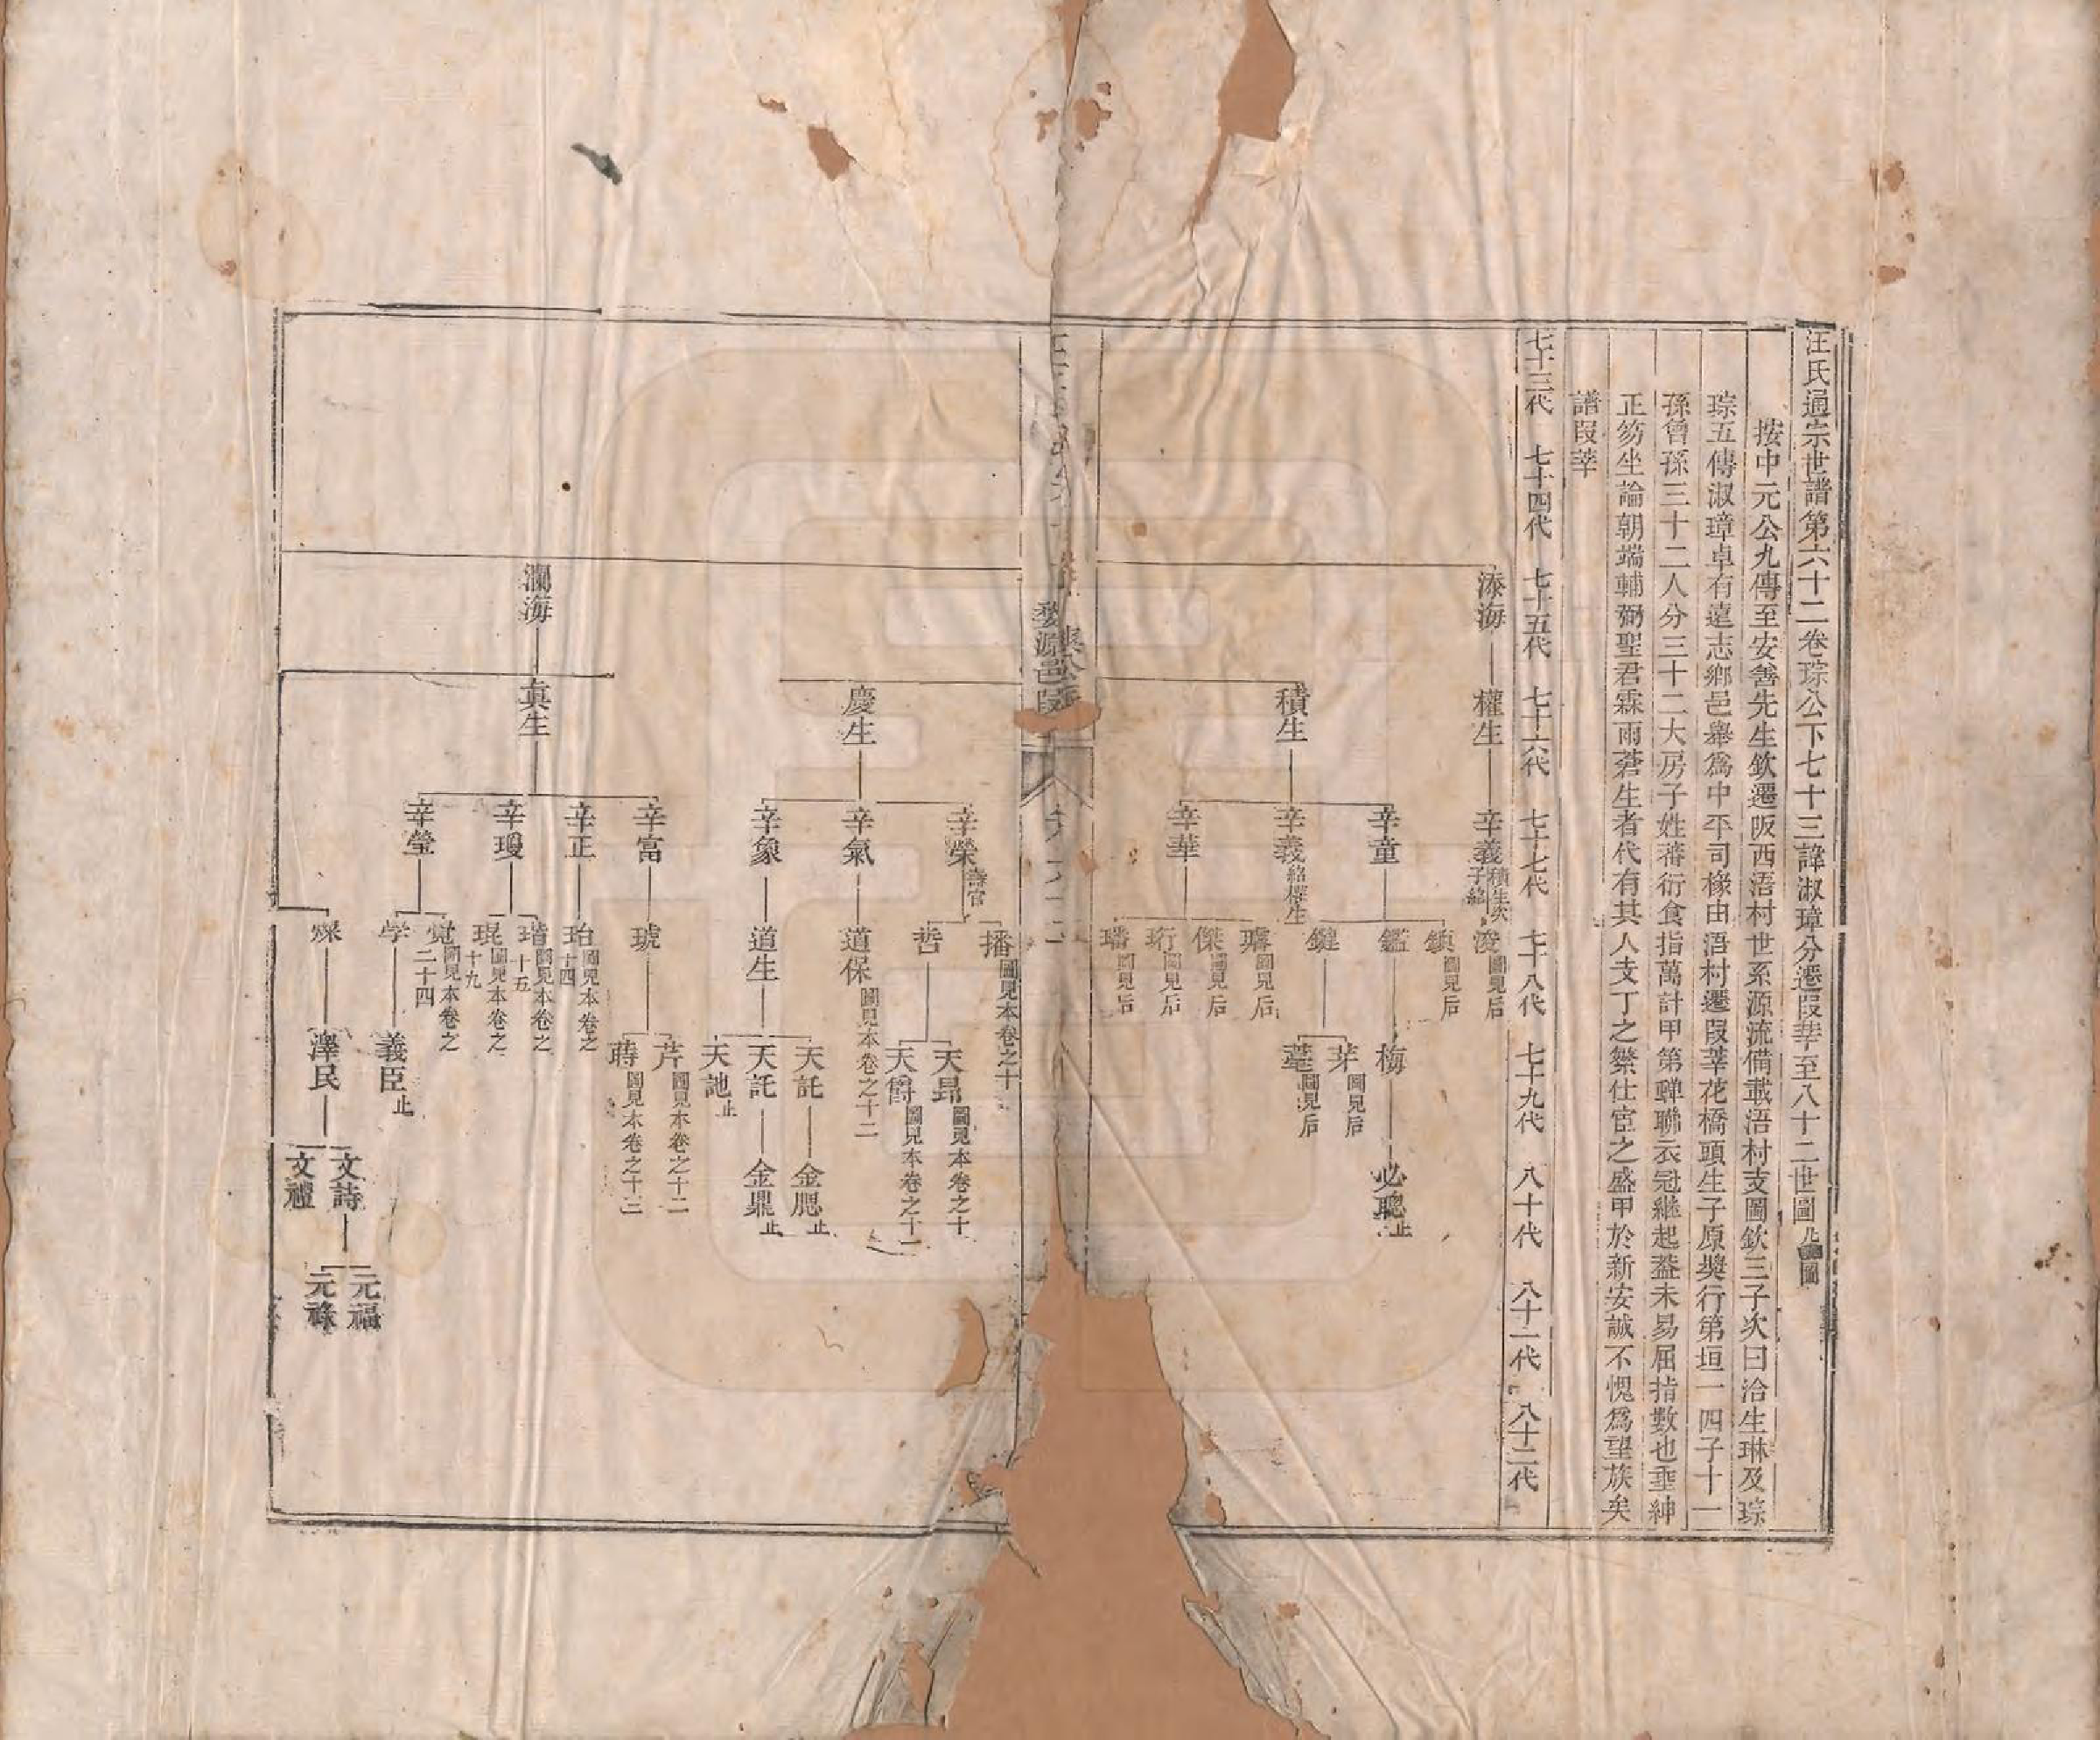 汪氏通宗世譜第六十二卷琮公下七十三諱淑璋分遷葭莘至八十二世圖
按中元公九傳至安善先生欽遷阪西浯村世系源流備載浯村支圖欽三子次曰洽生琳及琮
琮五傳淑璋卓有遠志鄉邑舉爲中平司椽由浯村遷葭莘花橋頭生子原奬行第垣一四子十一
孫曾孫三十二人分三十二大房子姓蕃衍食指萬計甲第蟬聯衣冠繼起蓋未易屈指數也垂紳
正笏坐論朝端輔弼聖君霖雨蒼生者代有其人支丁之繁仕宦之盛甲於新安誠不愧爲望族矣
譜葭莘
七十三代 七十四代 七十五代 七十六代 七十七代 七十八代 七十九代 八十代 八十一代 八十二代
添海 權生 辛義 積生次子紹 浚 圖見后
積生
辛童
鎮 圖見后
鑑 梅 必聰 止
鍵
芉 圖見后
圖見后
辛義 紹權生
辛華
圖見后
傑 圖見后
珩 圖見后
璠 圖見后
婺源邑葭
慶生
辛榮 壽官
播 圖見本卷之十
哲
天昻 圖見本卷之十
天爵 圖見本卷之十一
辛氣 道保 圖見本卷之十二
辛象 道生
天託 金腮 止
天託 金鼎 止
天訑 止
瀾海 真生
辛富 琥
芹 圖見本卷之十二
蒔 圖見本卷之十三
辛正 珆 圖見本卷之十四
辛璎
瑎 圖見本卷之十五
琨 圖見本卷之十九
辛瑩
覚 圖見本卷之二十四
学 義臣 止
澤民
文詩
元福
元祿
文禮